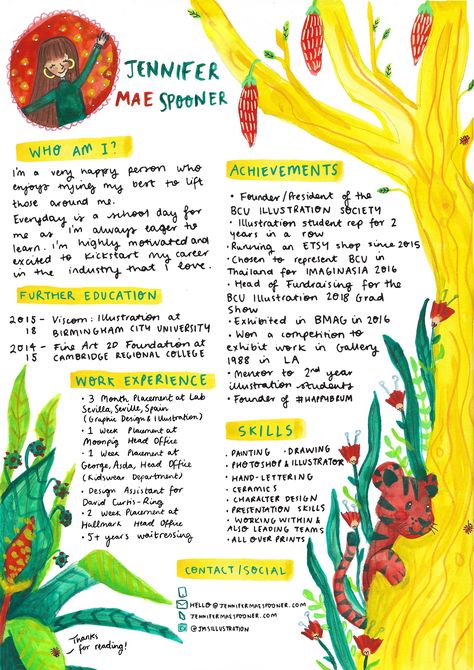 JENNIFER
MAE SPOONER
WHO AM I?
I'm a very happy person who
enjoys trying my best to lift
those around me.
Everyday is a school day for
me as I'm always eager to
learn. I'm highly motivated and
excited to kickstart my career
in the industry that I love.
FURTHER EDUCATION
2015 - Viscom: Illustration at
18 BIRMINGHAM CITY UNIVERSITY
2014 - Fine Art 2D Foundation at
15 CAMBRIDGE REGIONAL COLLEGE
WORK EXPERIENCE
• 3 Month Placement at Lab
Sevilla, Seville, Spain
(Graphic Design & Illustration)
• 1 Week Placement at
Moonpig Head Office
• 1 Week Placement at
George, Asda, Head Office
(Kidswear Department)
• Design Assistant for
David Curtis-Ring
• 2 Week Placement at
Hallmark Head Office
• 5+ years waitressing
ACHIEVEMENTS
• Founder/President of the
BCU ILLUSTRATION SOCIETY
• Illustration student rep for 2
years in a row
• Running an ETSY shop since 2015
• Chosen to represent BCU in
Thailand for IMAGINASIA 2016
• Head of Fundraising for the
BCU Illustration 2018 Grad
Show
• Exhibited in BMAG in 2016
• Won a competition to
exhibit work in Gallery
1988 in LA
• Mentor to 2nd year
illustration students
• Founder of #HAPPYBRUM
SKILLS
• PAINTING • DRAWING
• PHOTOSHOP & ILLUSTRATOR
• HAND-LETTERING
• CERAMICS
• CHARACTER DESIGN
• PRESENTATION SKILLS
• WORKING WITHIN &
ALSO LEADING TEAMS
• ALL OVER PRINTS
CONTACT/SOCIAL
HELLO@JENNIFERMAESPOONER.COM
JENNIFERMAESPOONER.COM
@JMSILLUSTRATION
Thanks
for reading!